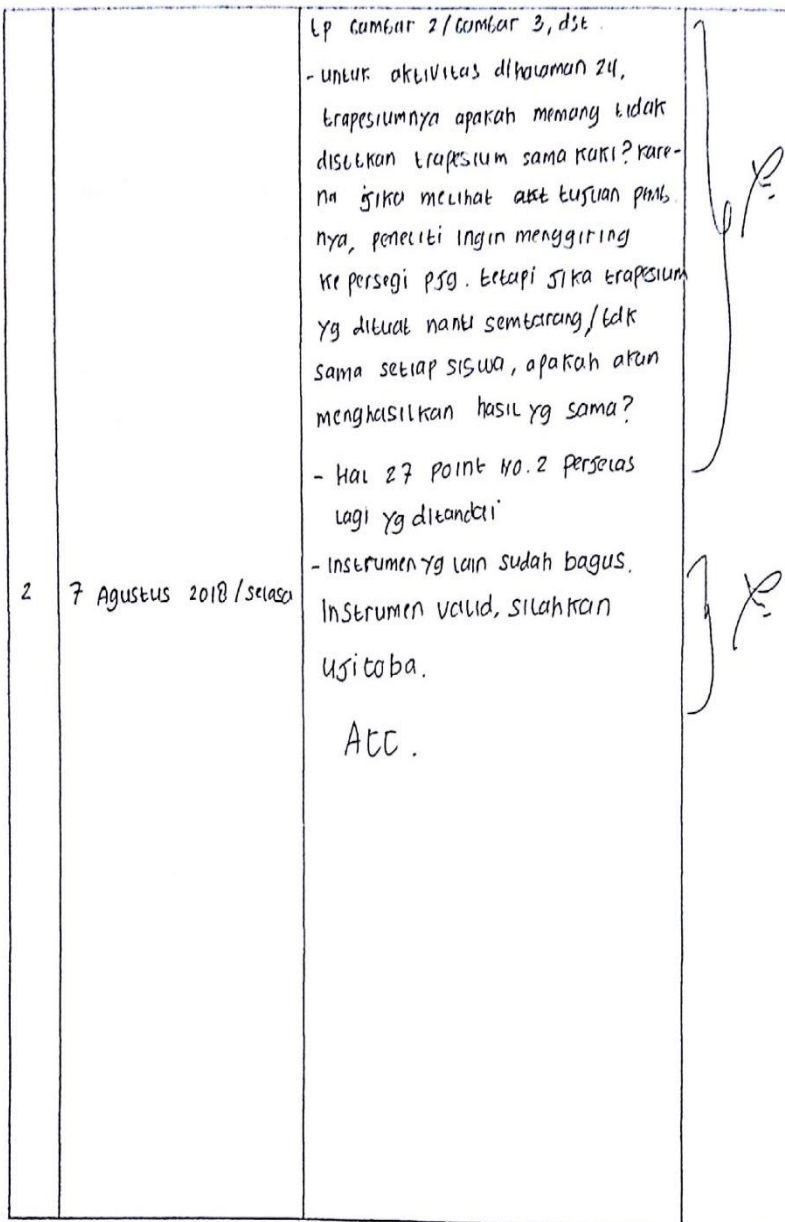 Lp Gambar 2/Gambar 3, dst.
- untuk aktivitas dihalaman 24,
trapesiumnya apakah memang tidak
disebtkan trapesium sama kaki? kare-
na jika melihat akt tujuan pemb.
nya, peneliti ingin menggiring
ke persegi pjg. tetapi jika trapesium
yg dibuat nanti sembarang/tdk
sama setiap siswa, apakah akan
menghasilkan hasil yg sama?
- Hal 27 point no. 2 perjelas
lagi yg ditandai
2 7 Agustus 2018/selasa - instrumen yg lain sudah bagus.
Instrumen valid, silahkan
Ujicoba.
ACC.